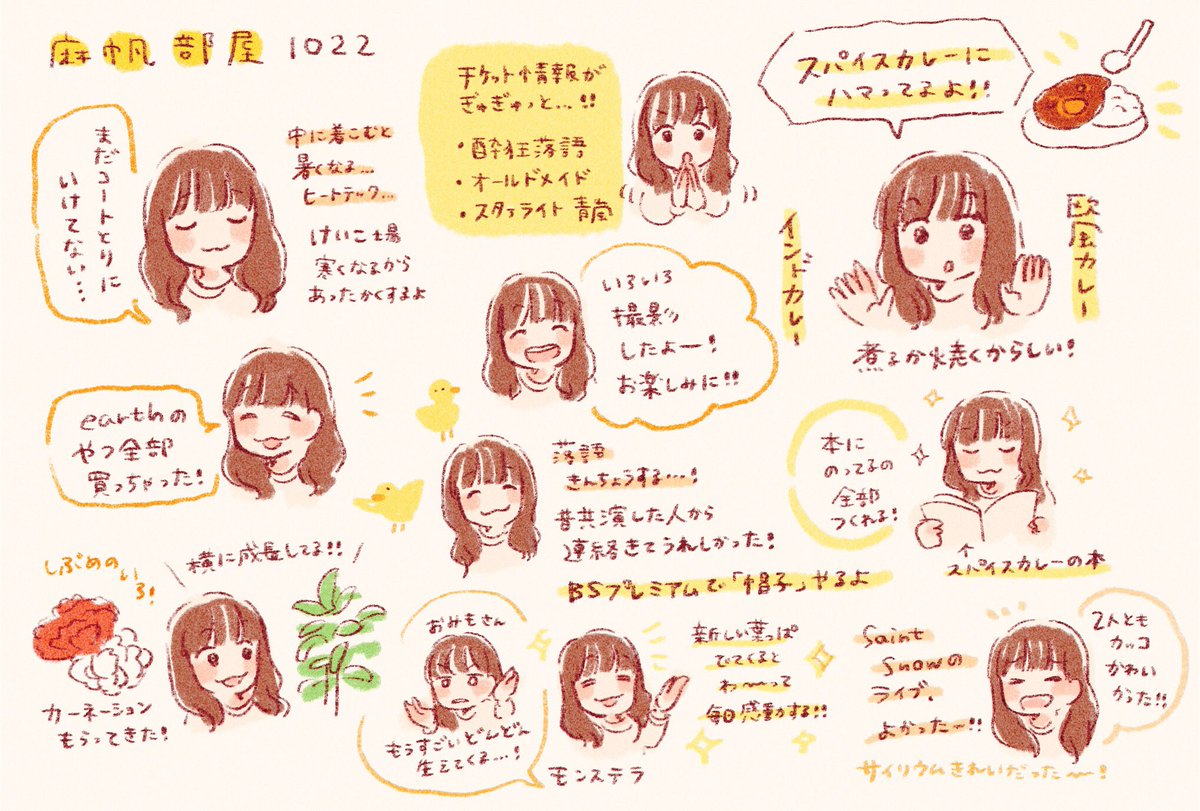 麻帆部屋 1022
まだコートとりに
いけてない…
中に着こむと
暑くなる…
ヒートテック…
けいこ場
寒くなるから
あったかくするよ
チケット情報が
ぎゅぎゅっと…!!
・酔狂落語
・オールドメイド
・スタァライト 青嵐
スパイスカレーに
ハマってるよ!!
インドカレー
欧風カレー
煮るか焼くからしい!
いろいろ
撮影
したよー!
お楽しみに!!
earthの
やつ全部
買っちゃった!
落語
きんちょうする…!
昔共演した人から
連絡きてうれしかった!
BSプレミアムで「帽子」やるよ
本に
のってるの
全部
つくれる!
↑
スパイスカレーの本
しぶめの
いろ!
カーネーション
もらってきた!
横に成長してる!!
おみもさん
もうすごいどんどん
生えてくる…!
モンステラ
新しい葉っぱ
でてくると
わ〜って
毎日感動する!!
Saint
Snowの
ライブ、
よかった〜!!
サイリウムきれいだった〜!
2人とも
カッコ
かわい
かった!!